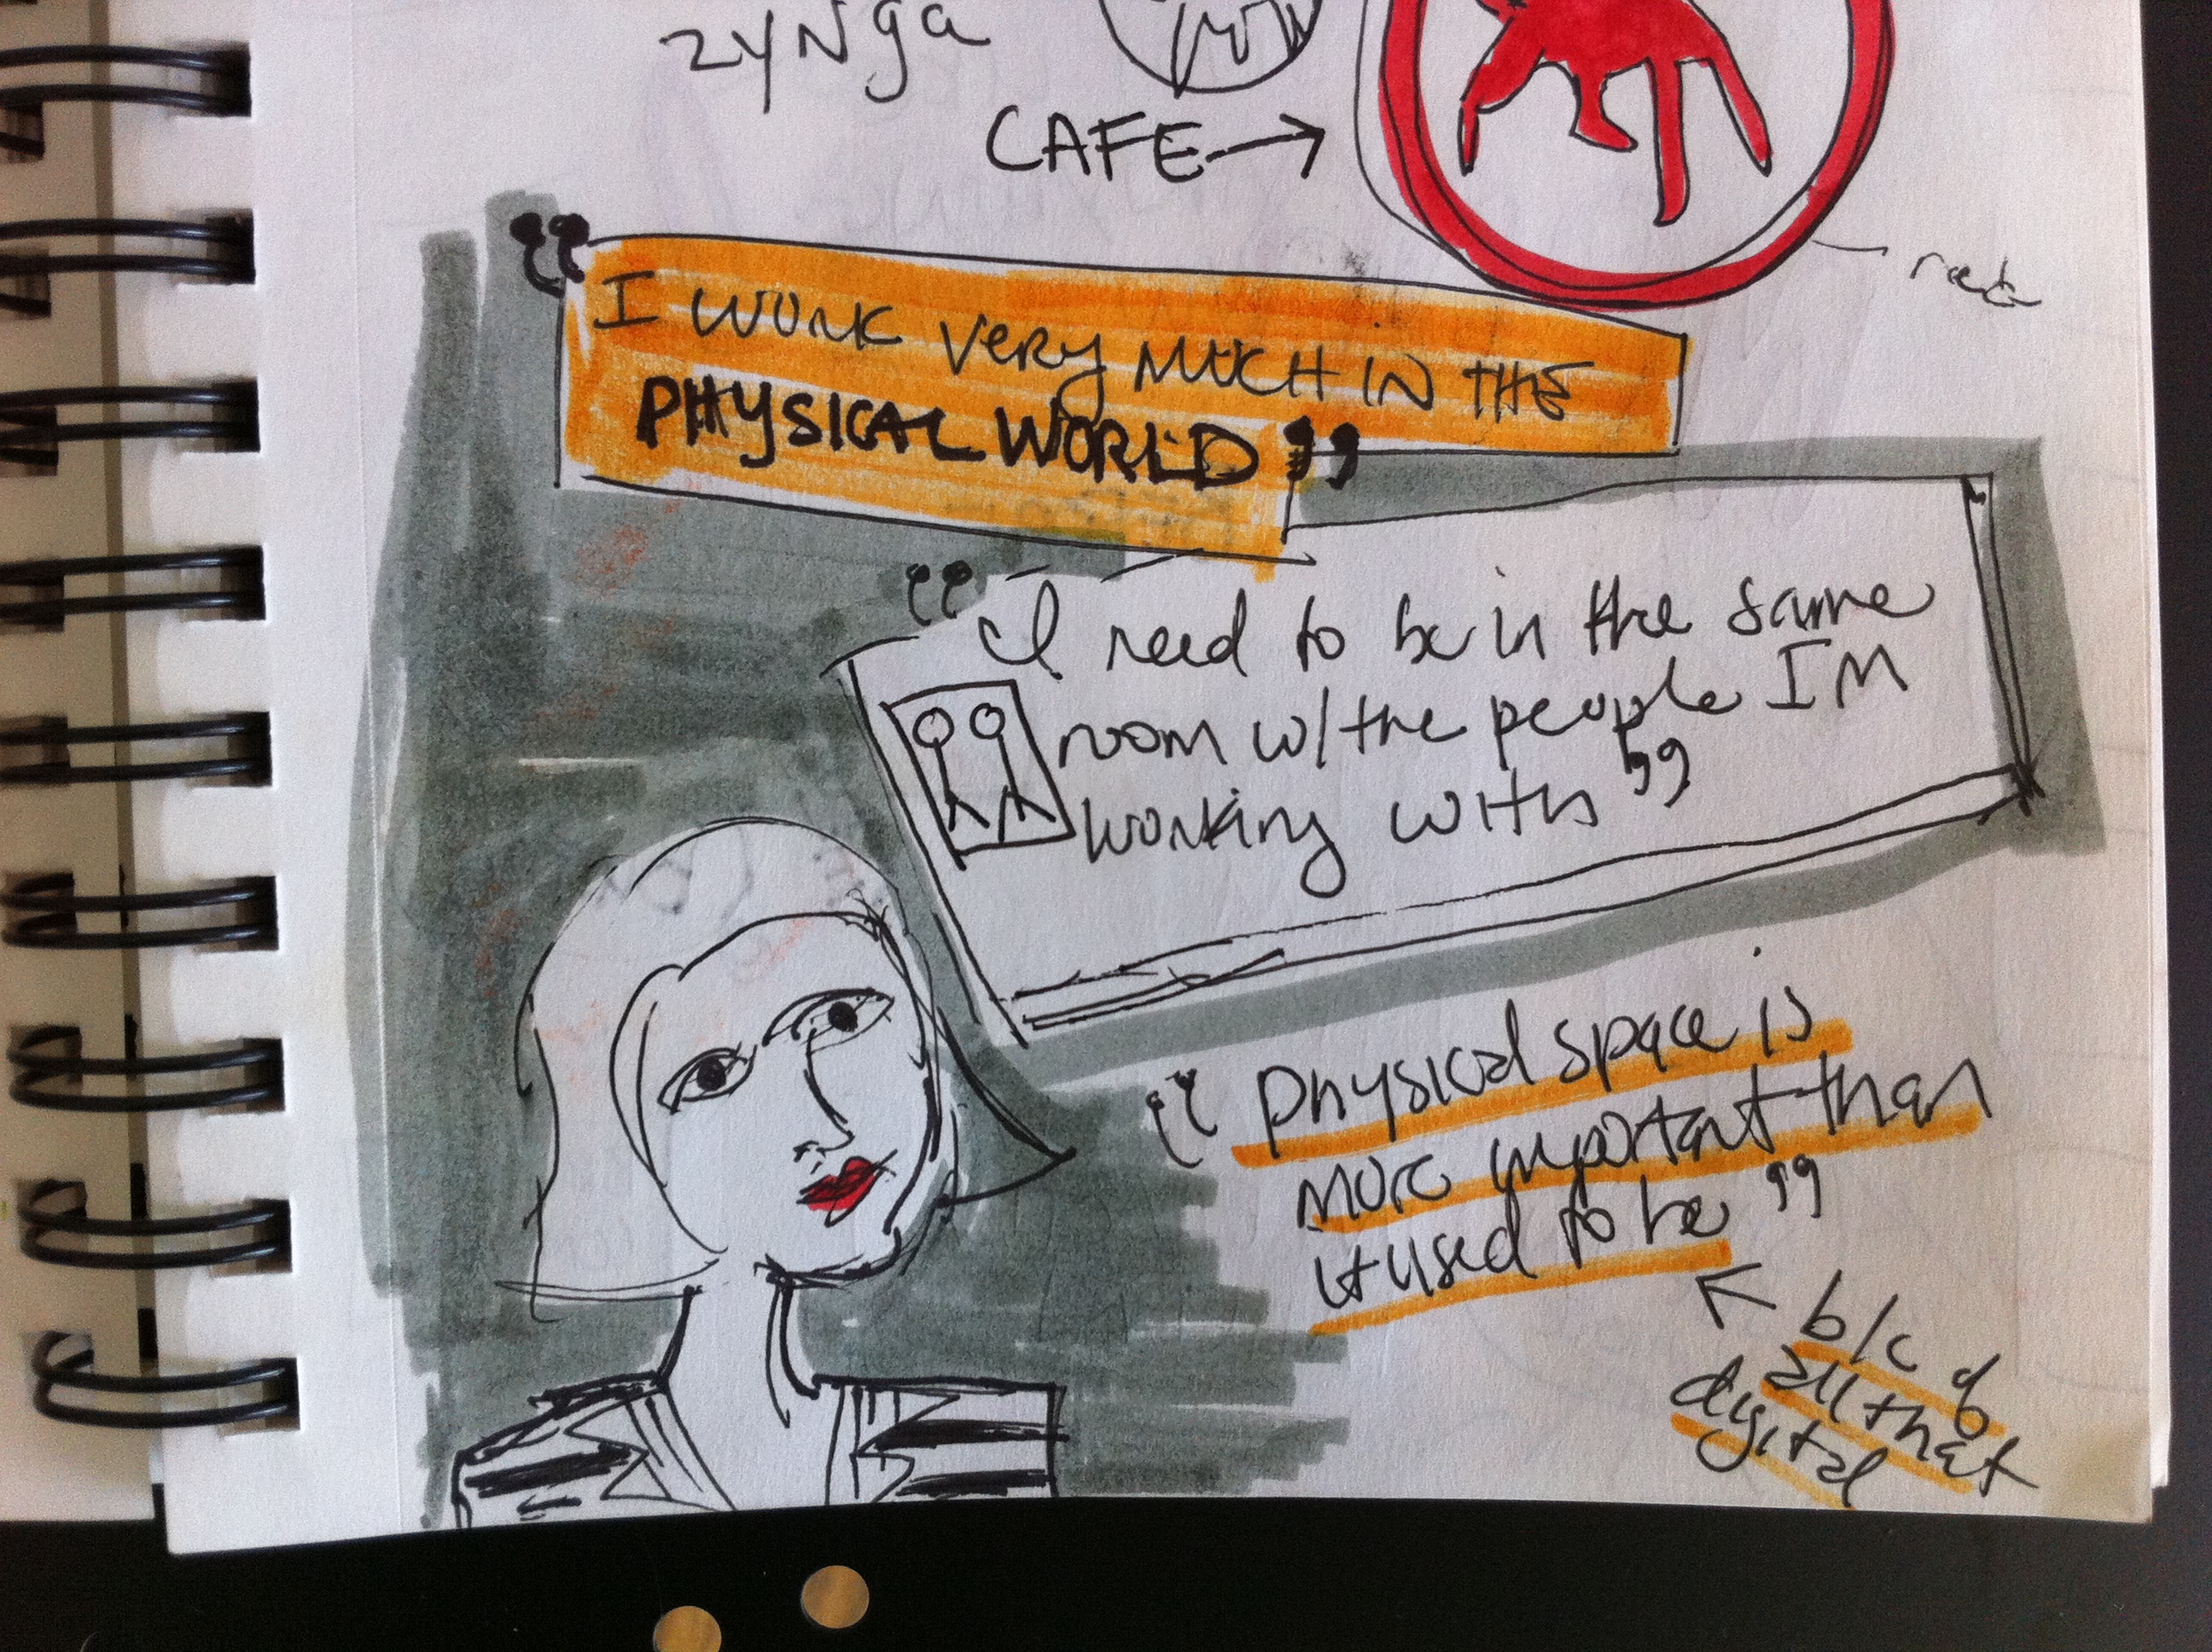 zyNga
CAFE →
red
“I WORK VERY MUCH IN THE
PHYSICAL WORLD”
“I need to be in the same
room w/the people I'M
working with”
“physical space is
more important than
it used to be”
← b/c of
all that
digital